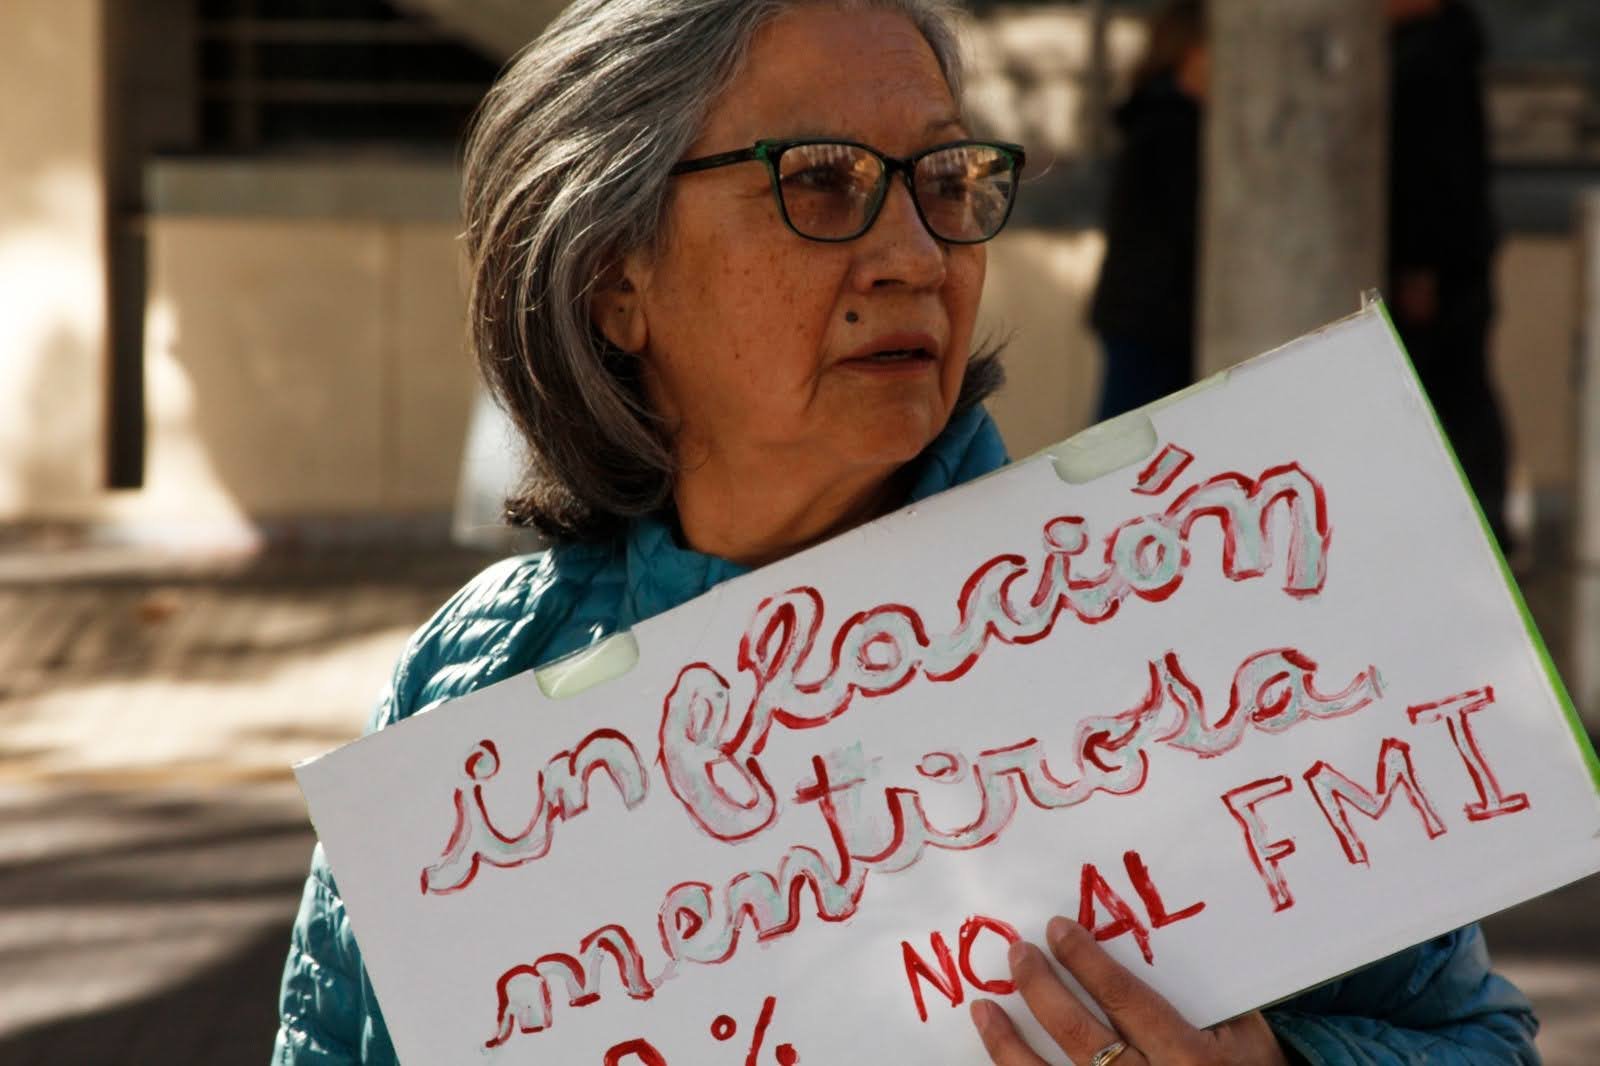 inflación
mentirosa
NO AL FMI
%